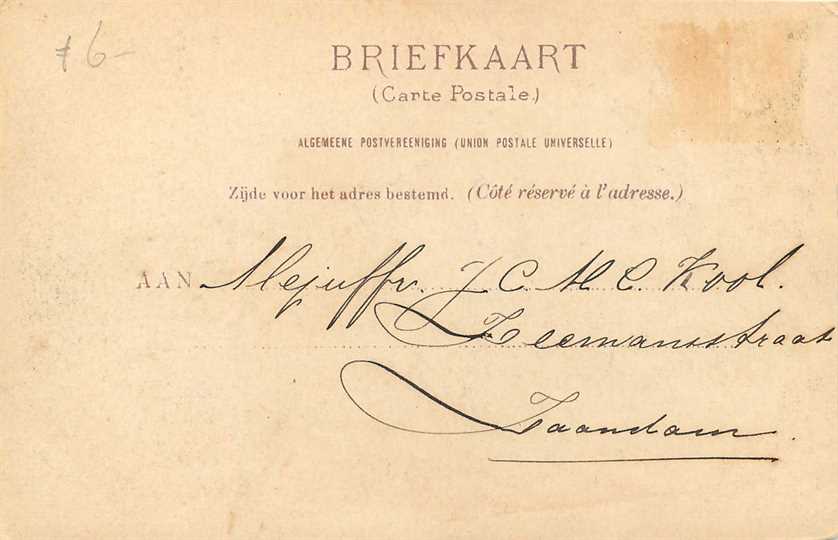 ƒ 6-
BRIEFKAART
(Carte Postale.)
ALGEMEENE POSTVEREENIGING (UNION POSTALE UNIVERSELLE)
Zijde voor het adres bestemd. (Côté réservé à l'adresse.)
AAN Mejuffr. J. C. M. C. Kool.
Zeemansstraat
Zaandam.